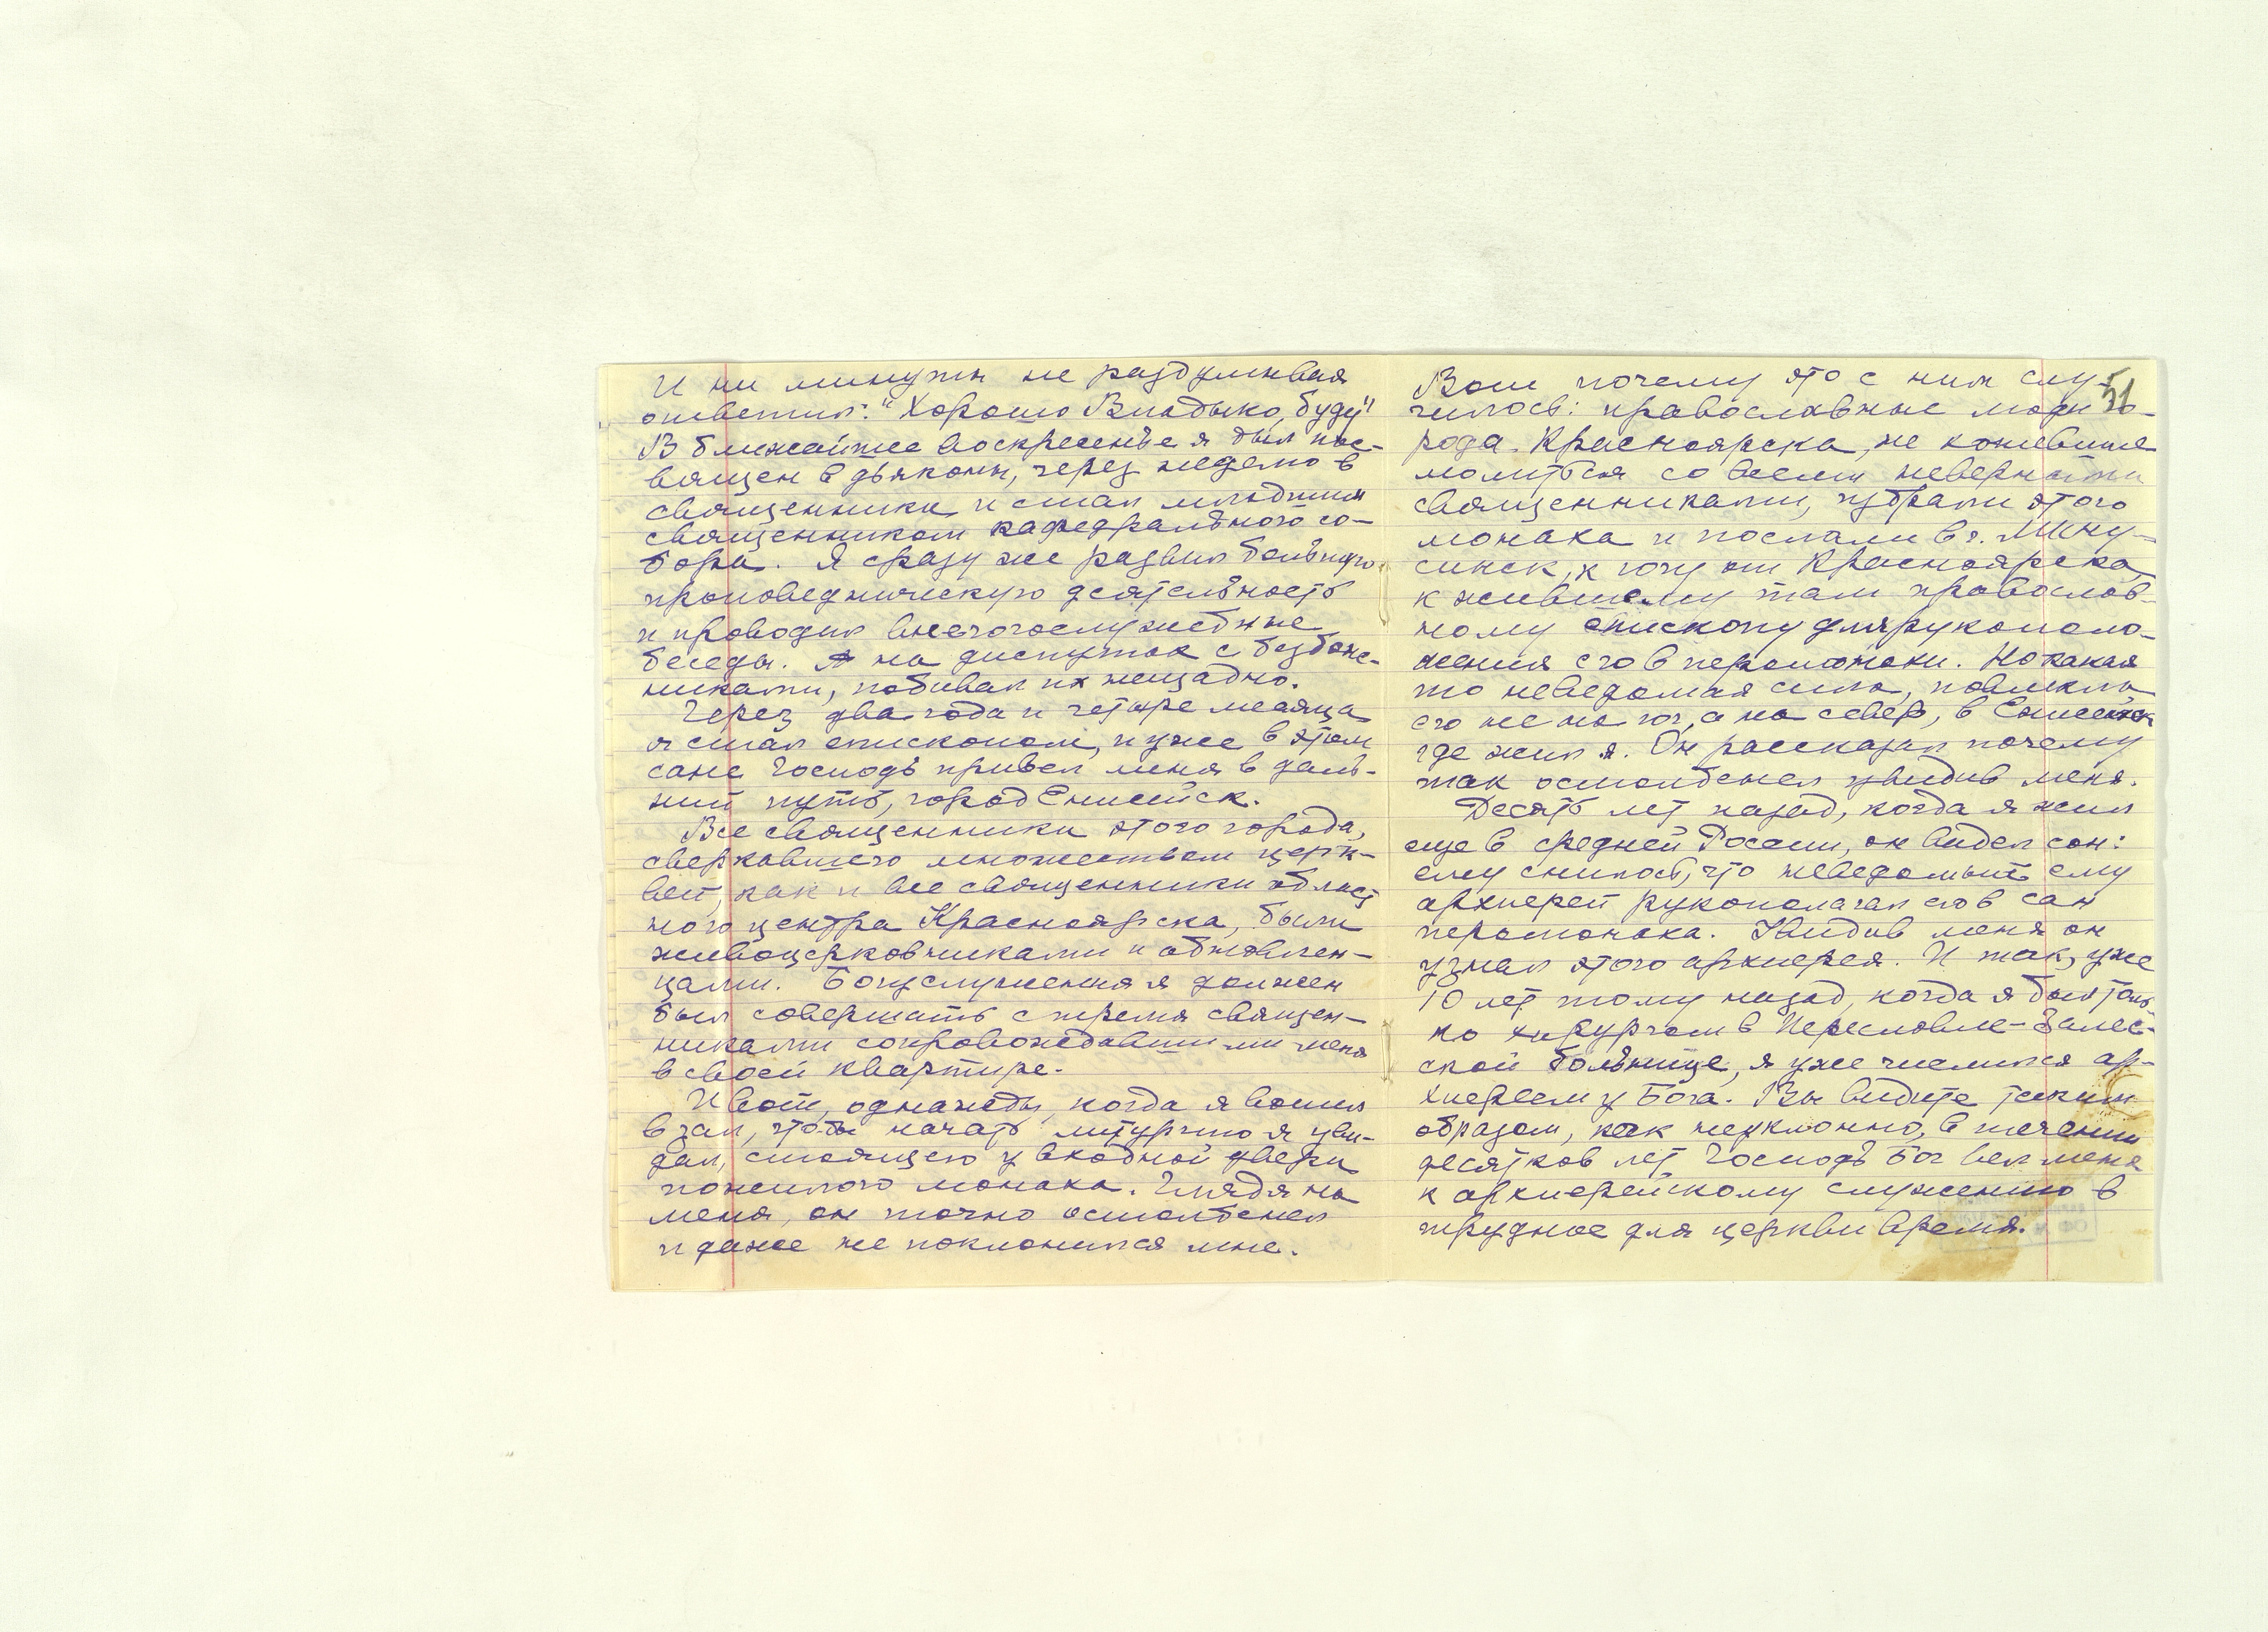 И ни минуты не раздумывая
ответил: "Хорошо Владыко, буду"
В ближайшее воскресенье я был пос-
вящен в дьяконы, через неделю в
священники и стал младшим
священником кафедрального со-
бора. Я сразу же развил большую
проповедническую деятельность
и проводил внебогослужебные
беседы. А на диспутах с безбож-
никами, побивал их нещадно.
Через два года и четыре месяца
я стал епископом, и уже в этом
сане Господь привел меня в даль-
ний путь, город Енисейск.
Все священники этого города,
сверкавшего множеством церк-
вей, как и все священники област
ного центра Красноярска, были
живоцерковниками и обновлен-
цами. Богуслужения я должен
был совершать с тремя священ-
никами сопровождавшими меня
в своей квартире.
И вот, однажды, когда я вошел
в зал, чтобы начать литургию я уви-
дал, стоящего у входной двери
пожилого монаха. Глядя на
меня, он точно остолбенел
и даже не поклонился мне.
51
Вот почему это с ним слу-
чилось: православные люди го-
рода Красноярска, не хотевшие
молиться со всеми неверными
священниками, избрали этого
монаха и послали в г. Мину-
синск, к югу от Красноярска,
к жившему там православ-
ному епископу для рукополо-
жения его в иеромонахи. Но какая
то неведомая сила, повлекла
его не на юг, а на север, в Енисейск
где жил я. Он рассказал почему
так остолбенел увидив меня.
Десять лет назад, когда я жил
еще в средней России, он видел сон:
ему снилось, что неведомый ему
архиерей рукополагал его в сан
иеромонаха. Увидив меня он
узнал этого архиерея. И так, уже
10 лет тому назад, когда я был толь
ко хирургом в Переславле-Залес-
ской больнице, я уже числился ар-
хиереем у Бога. Вы видите таким
образом, как неуклонно, в течении
десятков лет Господь Бог вел меня
к архиерейскому служению в
трудное для церкви время.